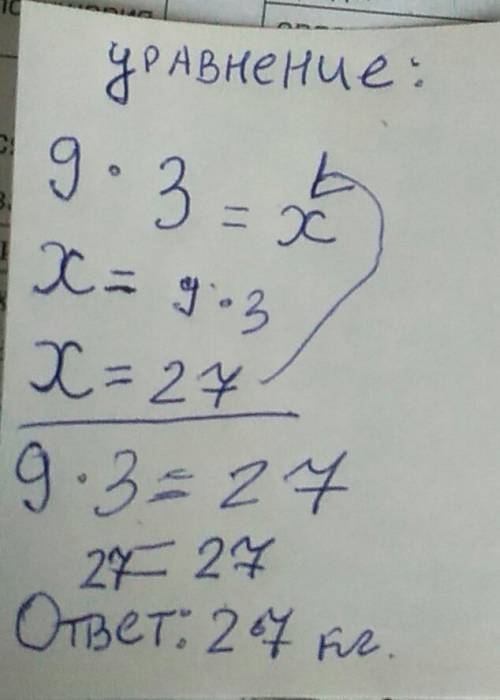 уравнение:
9 · 3 = x
x = 9 · 3
x = 27
9 · 3 = 27
27 = 27
Ответ: 27 кг.